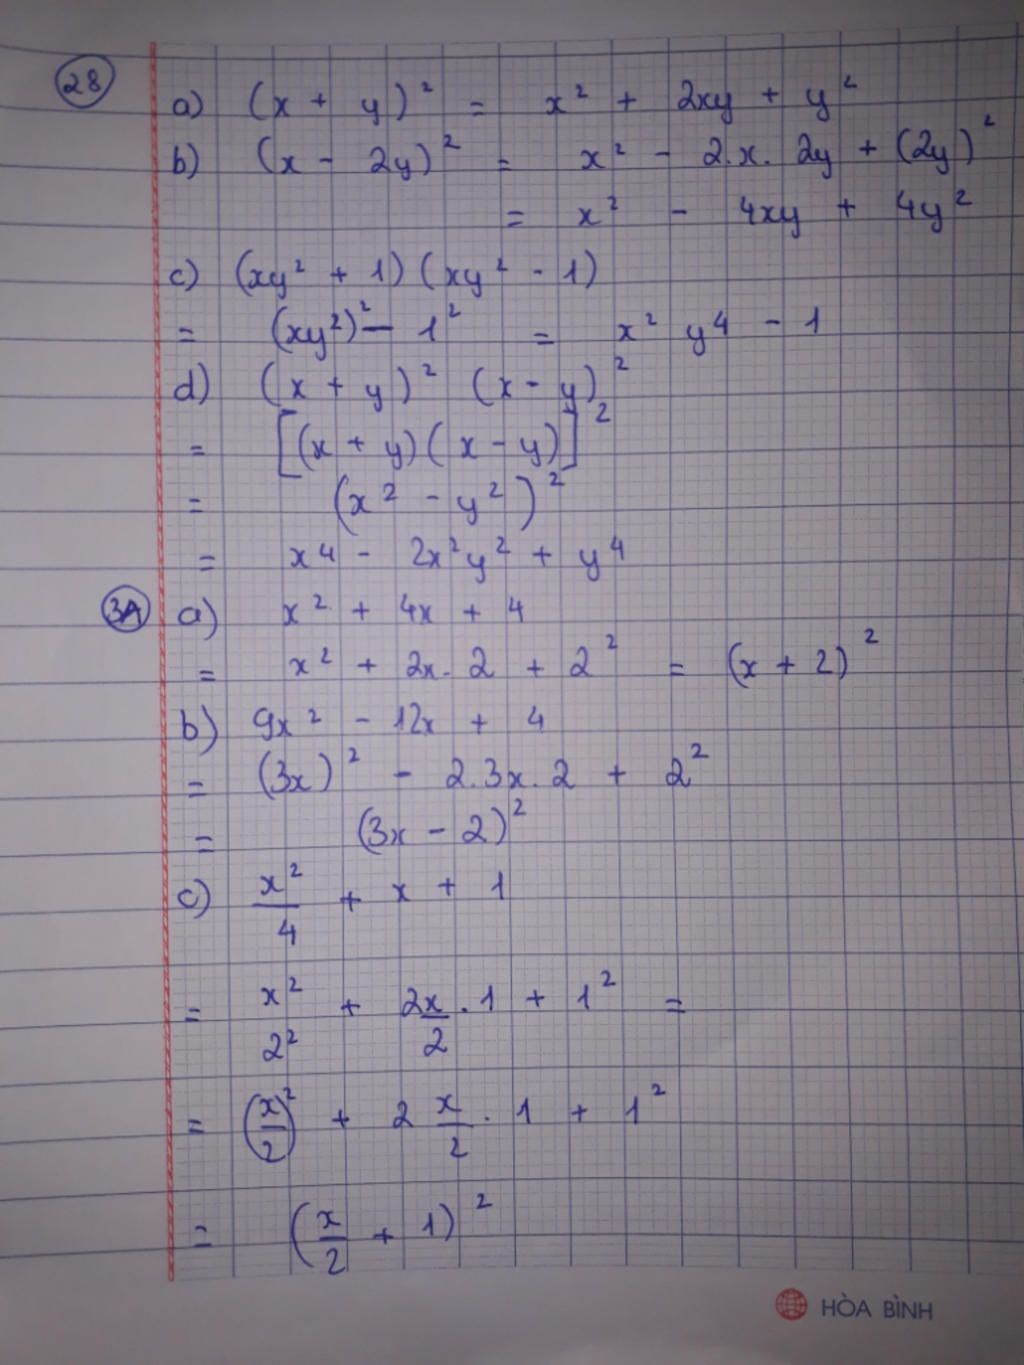 28
a) (x + y)² = x² + 2xy + y²
b) (x - 2y)² = x² - 2.x. 2y + (2y)²
= x² - 4xy + 4y²
c) (xy² + 1)(xy² - 1)
= (xy²)² - 1² = x² y⁴ - 1
d) (x + y)² (x - y)²
= [(x + y)(x - y)]²
= (x² - y²)²
= x⁴ - 2x²y² + y⁴
3A a) x² + 4x + 4
= x² + 2x. 2 + 2² = (x + 2)²
b) 9x² - 12x + 4
= (3x)² - 2.3x.2 + 2²
= (3x - 2)²
c) x²/4 + x + 1
= x²/2² + 2x/2 . 1 + 1² =
= (x/2)² + 2 x/2 . 1 + 1²
= (x/2 + 1)²
HÒA BÌNH